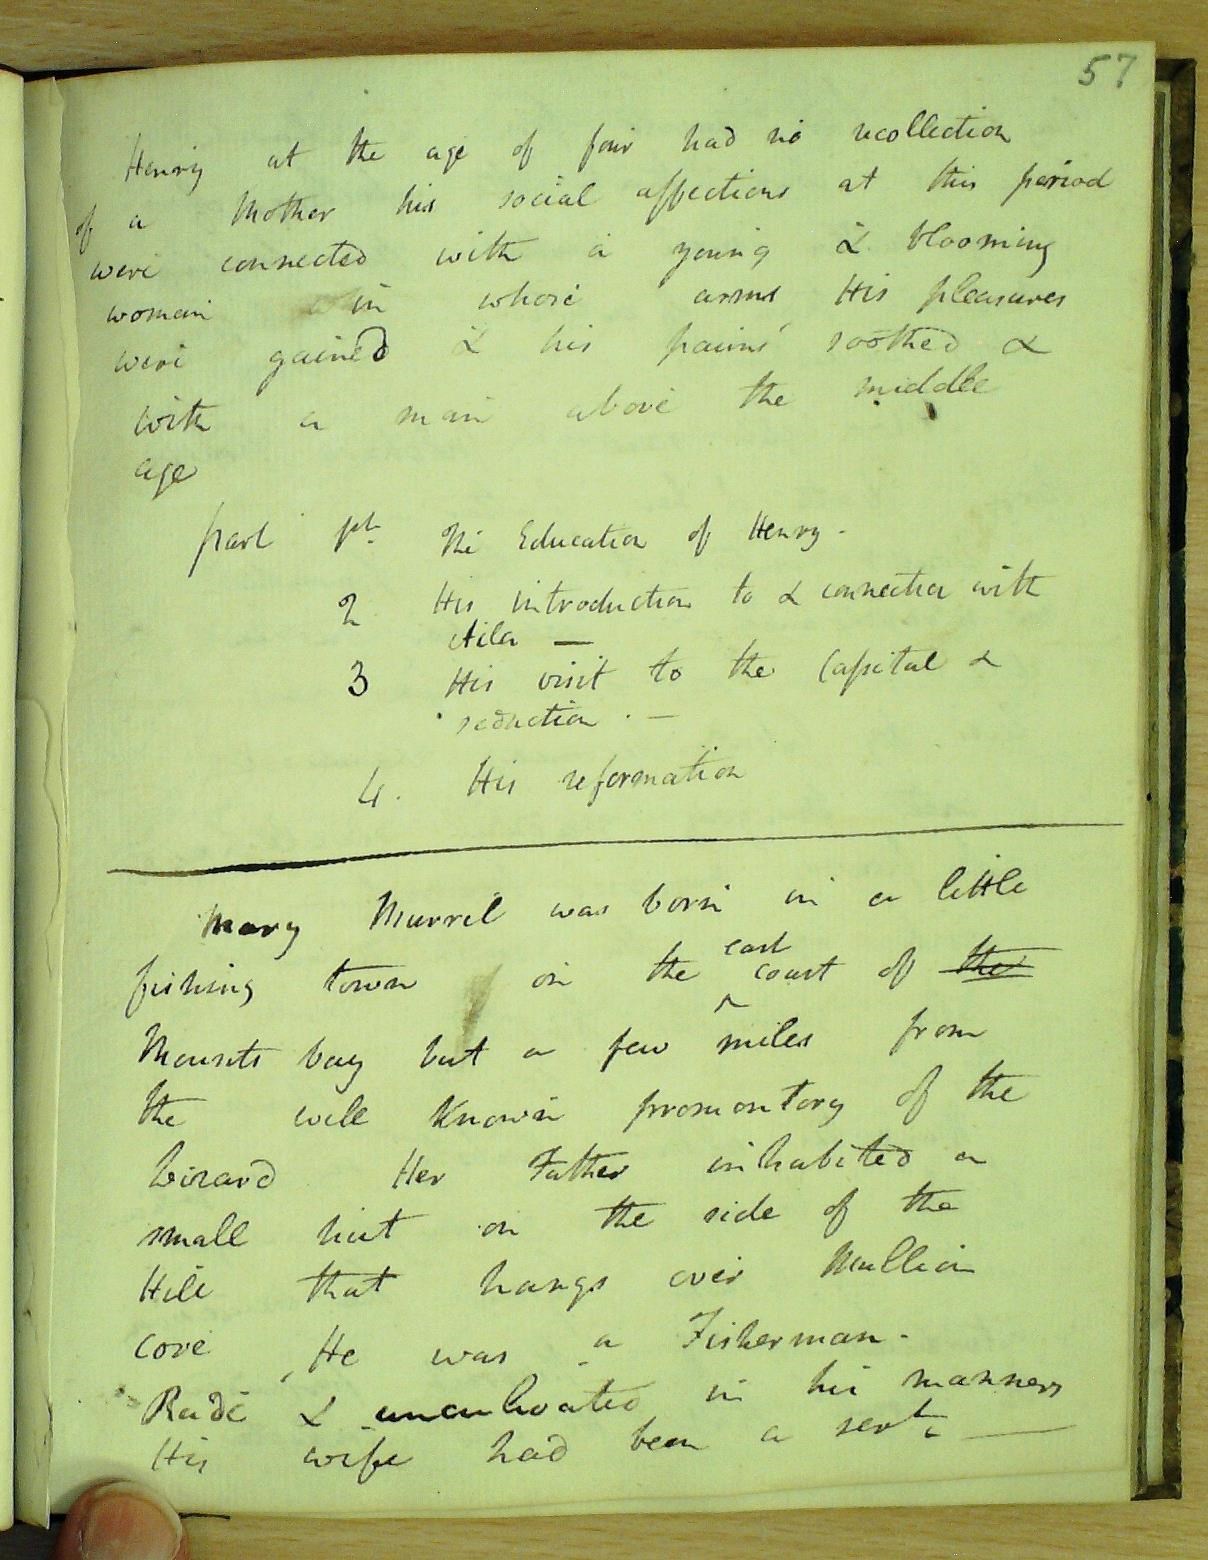 57
Henry at the age of four had no recollection
of a Mother his social affections at this period
were connected with a young & blooming
woman in whose arms His pleasures
were gained & his pains soothed &
with a man above the middle
age
part 1st. The Education of Henry -
2 His introduction to & connection with
Aila —
3 His visit to the Capital &
seduction . —
4. His reformation
Mary Murrel was born in a little
fishing town on the east coast of the
Mounts bay but a few miles from
the well known promontory of the
Lizard Her Father inhabited a
small hut on the side of the
Hill that hangs over Mullion
cove He was a Fisherman -
Rude & uncultivated in his manners
His wife had been a servt —